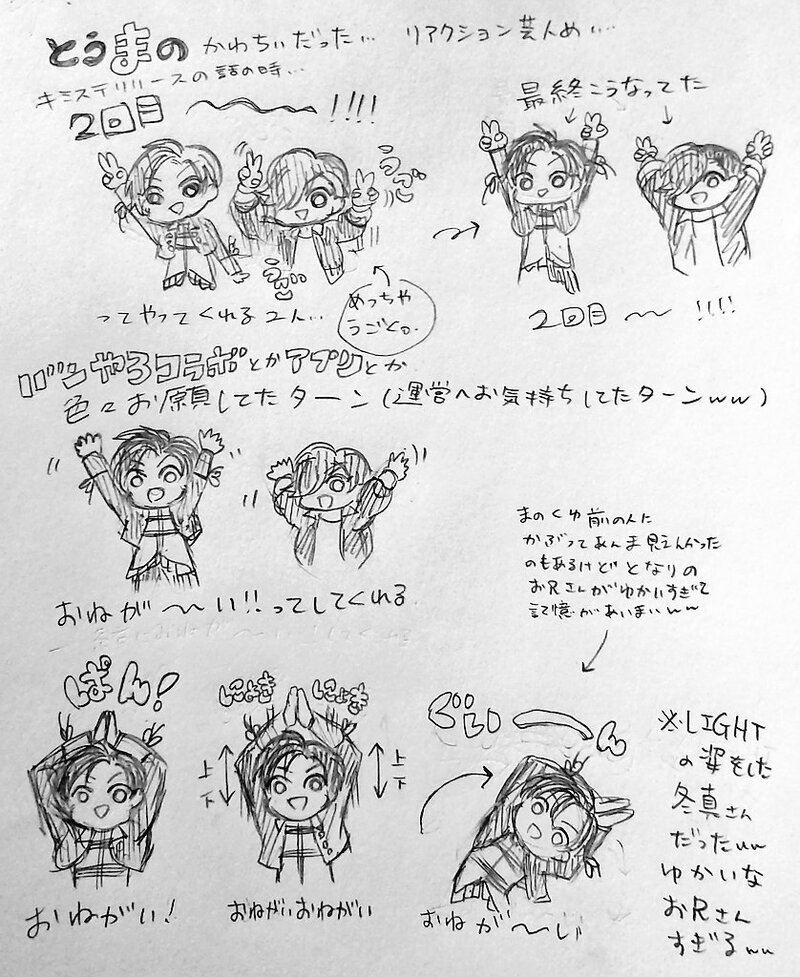 とうまの かわちぃだった… リアクション芸人め…
キミステリリースの話の時…
2回目 〜〜〜 !!!!
最終こうなってた
うご
うご
めっちゃ
うごくっ.
ってやってくれる2人…
2回目 〜〜 !!!!
バンやろコラボとかアプリとか
色々お願してたターン(運営へお気持ちしてたターンww)
おねが〜〜い!!ってしてくれる
まのくゆ前の人に
かぶってあんま見えんかった
のもあるけどとなりの
お兄さんがゆかいすぎて
記憶があいまいww
ぱん!
にょき にょき
上
下
上
下
ぐい〜ん
おねがい!
おねがいおねがい
おねが〜い
※LIGHT
の姿をした
冬真さん
だったww
ゆかいな
お兄さん
すぎるww